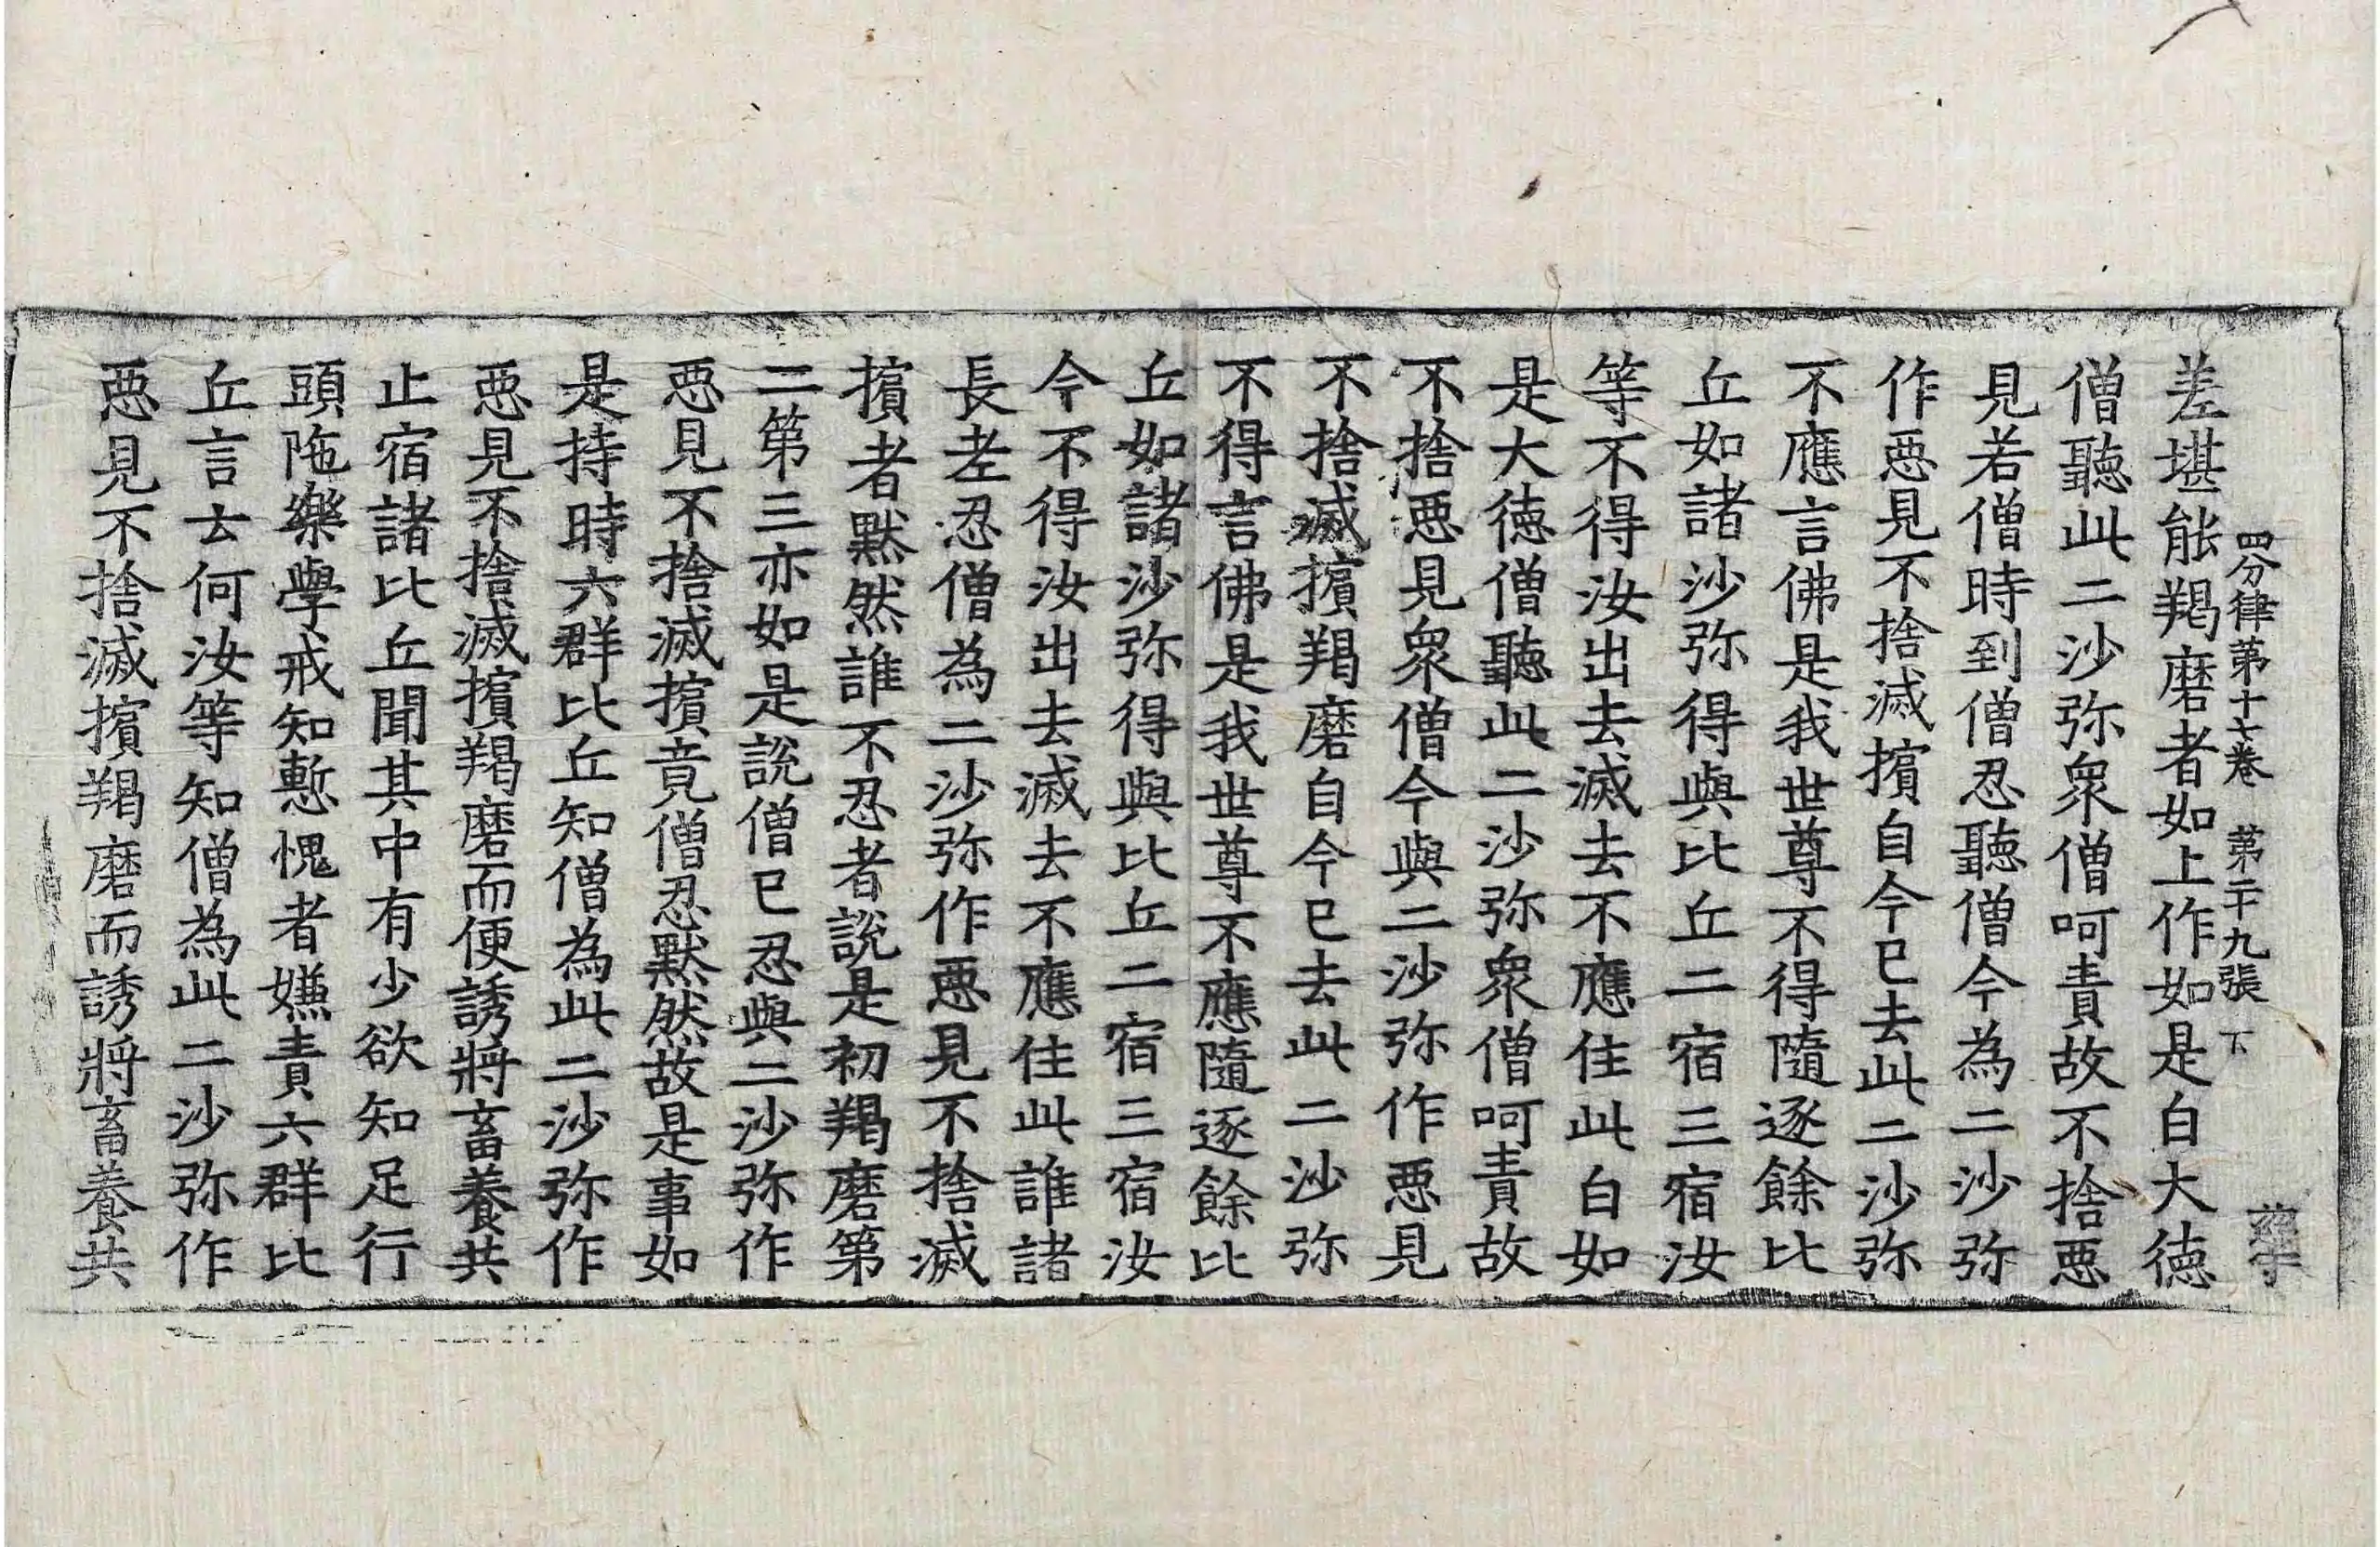 四分律第十七卷　第二十九張　下
差堪能羯磨者如上作如是白大徳
僧聽此二沙弥衆僧呵責故不捨惡
見若僧時到僧忍聽僧今為二沙弥
作惡見不捨滅擯自今已去此二沙弥
不應言佛是我世尊不得隨逐餘比
丘如諸沙弥得與比丘二宿三宿汝
等不得汝出去滅去不應住此白如
是大徳僧聽此二沙弥衆僧呵責故
不捨惡見衆僧今與二沙弥作惡見
不捨滅擯羯磨自今已去此二沙弥
不得言佛是我世尊不應隨逐餘比
丘如諸沙弥得與比丘二宿三宿汝
今不得汝出去滅去不應住此誰諸
長老忍僧為二沙弥作惡見不捨滅
擯者黙然誰不忍者說是初羯磨第
二第三亦如是說僧已忍與二沙弥作
惡見不捨滅擯竟僧忍黙然故是事如
是持時六群比丘知僧為此二沙弥作
惡見不捨滅擯羯磨而便誘將畜養共
止宿諸比丘聞其中有少欲知足行
頭陁樂學戒知慙愧者嫌責六群比
丘言云何汝等知僧為此二沙弥作
惡見不捨滅擯羯磨而誘將畜養共